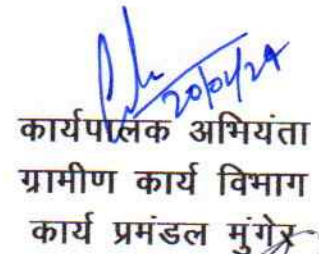 कार्यपालक अभियंता
ग्रामीण कार्य विभाग
कार्य प्रमंडल मुंगेर